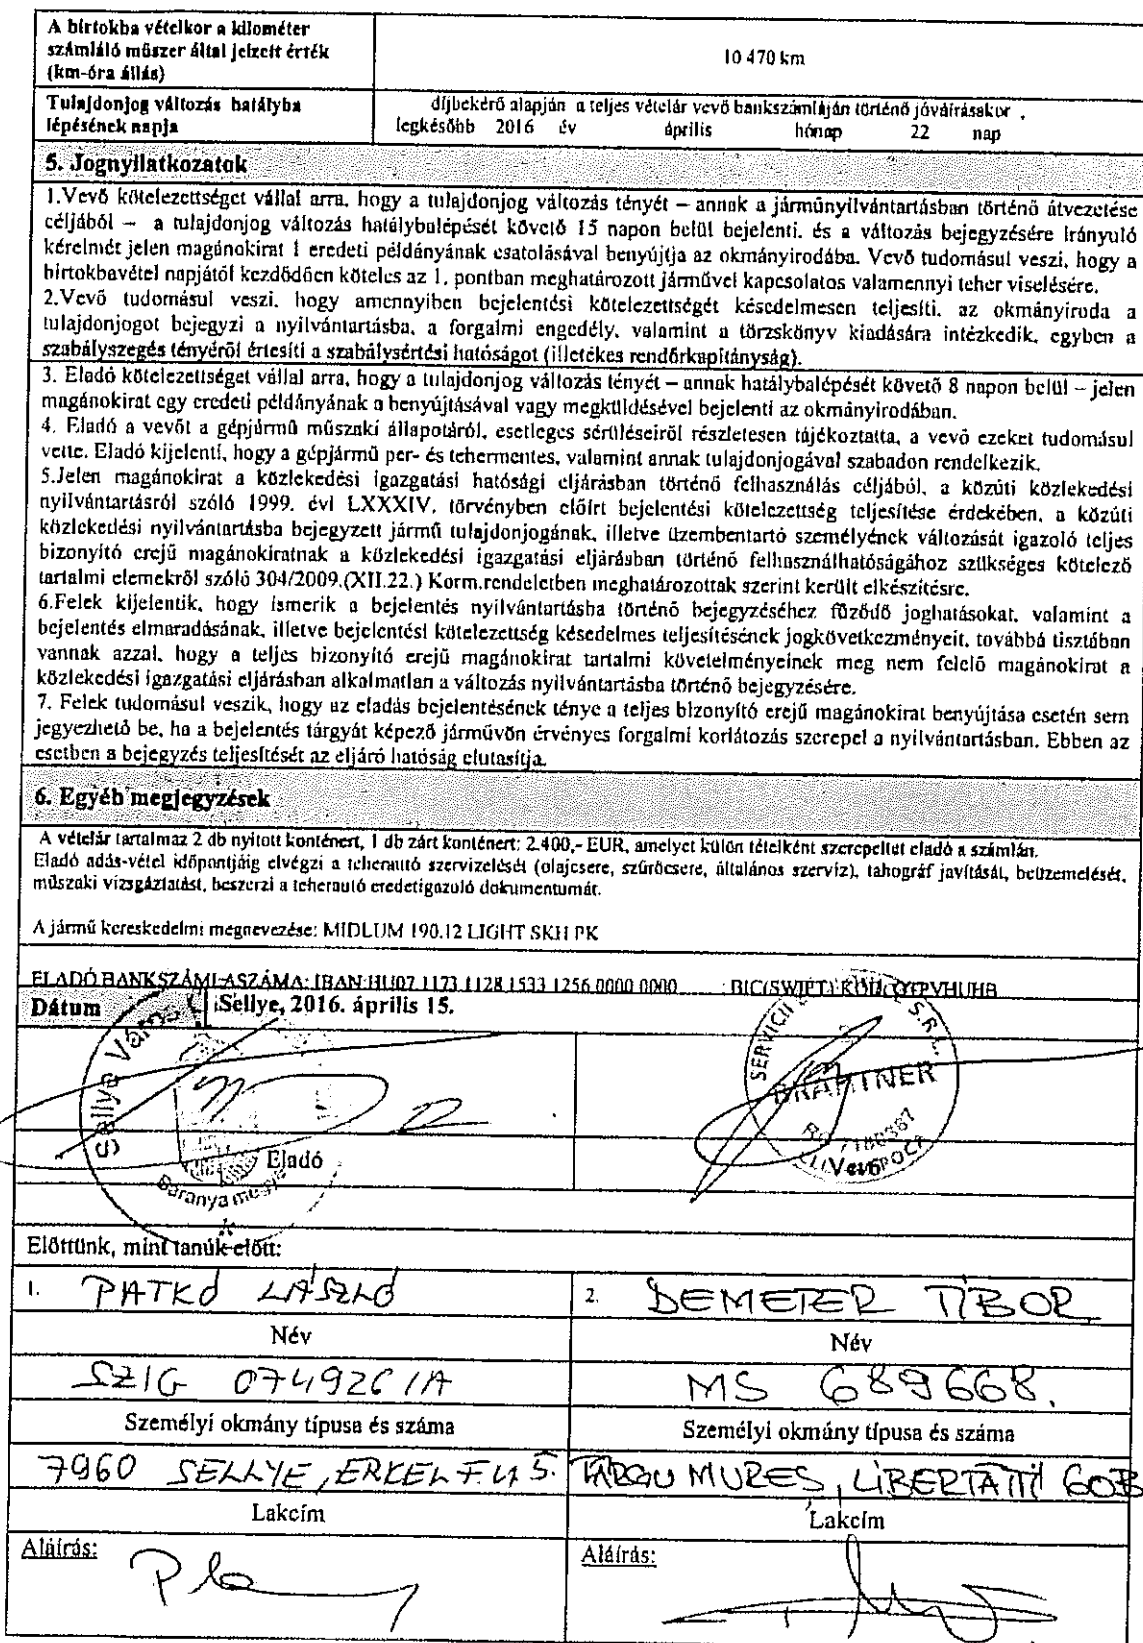 A birtokba vételkor a kilométer
számláló műszer által jelzett érték
(km-óra állás)
10 470 km
Tulajdonjog változás hatályba
lépésének napja
díjbekérő alapján a teljes vételár vevő bankszámláján történő jóváírásakor ,
legkésőbb 2016 év április hónap 22 nap
5. Jognyilatkozatok
1.Vevő kötelezettséget vállal arra, hogy a tulajdonjog változás tényét – annak a járműnyilvántartásban történő átvezetése
céljából – a tulajdonjog változás hatálybalépését követő 15 napon belül bejelenti, és a változás bejegyzésére irányuló
kérelmét jelen magánokirat 1 eredeti példányának csatolásával benyújtja az okmányirodába. Vevő tudomásul veszi, hogy a
birtokbavétel napjától kezdődően köteles az 1. pontban meghatározott járművel kapcsolatos valamennyi teher viselésére.
2.Vevő tudomásul veszi, hogy amennyiben bejelentési kötelezettségét késedelmesen teljesíti, az okmányiroda a
tulajdonjogot bejegyzi a nyilvántartásba, a forgalmi engedély, valamint a törzskönyv kiadására intézkedik, egyben a
szabályszegés tényéről értesíti a szabálysértési hatóságot (illetékes rendőrkapitányság).
3. Eladó kötelezettséget vállal arra, hogy a tulajdonjog változás tényét – annak hatálybalépését követő 8 napon belül – jelen
magánokirat egy eredeti példányának a benyújtásával vagy megküldésével bejelenti az okmányirodában.
4. Eladó a vevőt a gépjármű műszaki állapotáról, esetleges sérüléseiről részletesen tájékoztatta, a vevő ezeket tudomásul
vette. Eladó kijelenti, hogy a gépjármű per- és tehermentes, valamint annak tulajdonjogával szabadon rendelkezik.
5.Jelen magánokirat a közlekedési igazgatási hatósági eljárásban történő felhasználás céljából, a közúti közlekedési
nyilvántartásról szóló 1999. évi LXXXIV. törvényben előírt bejelentési kötelezettség teljesítése érdekében, a közúti
közlekedési nyilvántartásba bejegyzett jármű tulajdonjogának, illetve üzembentartó személyének változását igazoló teljes
bizonyító erejű magánokiratnak a közlekedési igazgatási eljárásban történő felhasználhatóságához szükséges kötelező
tartalmi elemekről szóló 304/2009.(XII.22.) Korm.rendeletben meghatározottak szerint került elkészítésre.
6.Felek kijelentik, hogy ismerik a bejelentés nyilvántartásba történő bejegyzéséhez fűződő joghatásokat, valamint a
bejelentés elmaradásának, illetve bejelentési kötelezettség késedelmes teljesítésének jogkövetkezményeit, továbbá tisztában
vannak azzal, hogy a teljes bizonyító erejű magánokirat tartalmi követelményeinek meg nem felelő magánokirat a
közlekedési igazgatási eljárásban alkalmatlan a változás nyilvántartásba történő bejegyzésére.
7. Felek tudomásul veszik, hogy az eladás bejelentésének ténye a teljes bizonyító erejű magánokirat benyújtása esetén sem
jegyezhető be, ha a bejelentés tárgyát képező járművön érvényes forgalmi korlátozás szerepel a nyilvántartásban. Ebben az
esetben a bejegyzés teljesítését az eljáró hatóság elutasítja.
6. Egyéb megjegyzések
A vételár tartalmaz 2 db nyitott konténert, 1 db zárt konténert: 2.400,- EUR, amelyet külön tételként szerepeltet eladó a számlán.
Eladó adás-vétel időpontjáig elvégzi a teherautó szervizelését (olajcsere, szűrőcsere, általános szerviz), tahográf javítását, beüzemelését,
műszaki vizsgáztatást, beszerzi a teherautó eredetigazoló dokumentumát.
A jármű kereskedelmi megnevezése: MIDLUM 190.12 LIGHT SKH PK
ELADÓ BANKSZÁMLASZÁMA: IBAN:HU07 1173 1128 1533 1256 0000 0000 BIC(SWIFT) KÓD: OTPVHUHB
Dátum Sellye, 2016. április 15.
Sellye Város
Baranya megye
SERVICII S.R.L.
BRANTNER
Eladó
Vevő
Előttünk, mint tanúk előtt:
1. PATKÓ LÁSZLÓ
2. DEMETER TIBOR
Név
Név
SZIG 074926 IA
MS 689668.
Személyi okmány típusa és száma
Személyi okmány típusa és száma
7960 SELLYE, ERKEL F. U 5.
TARGU MURES, LIBERTATII 60B
Lakcím
Lakcím
Aláírás:
Aláírás: